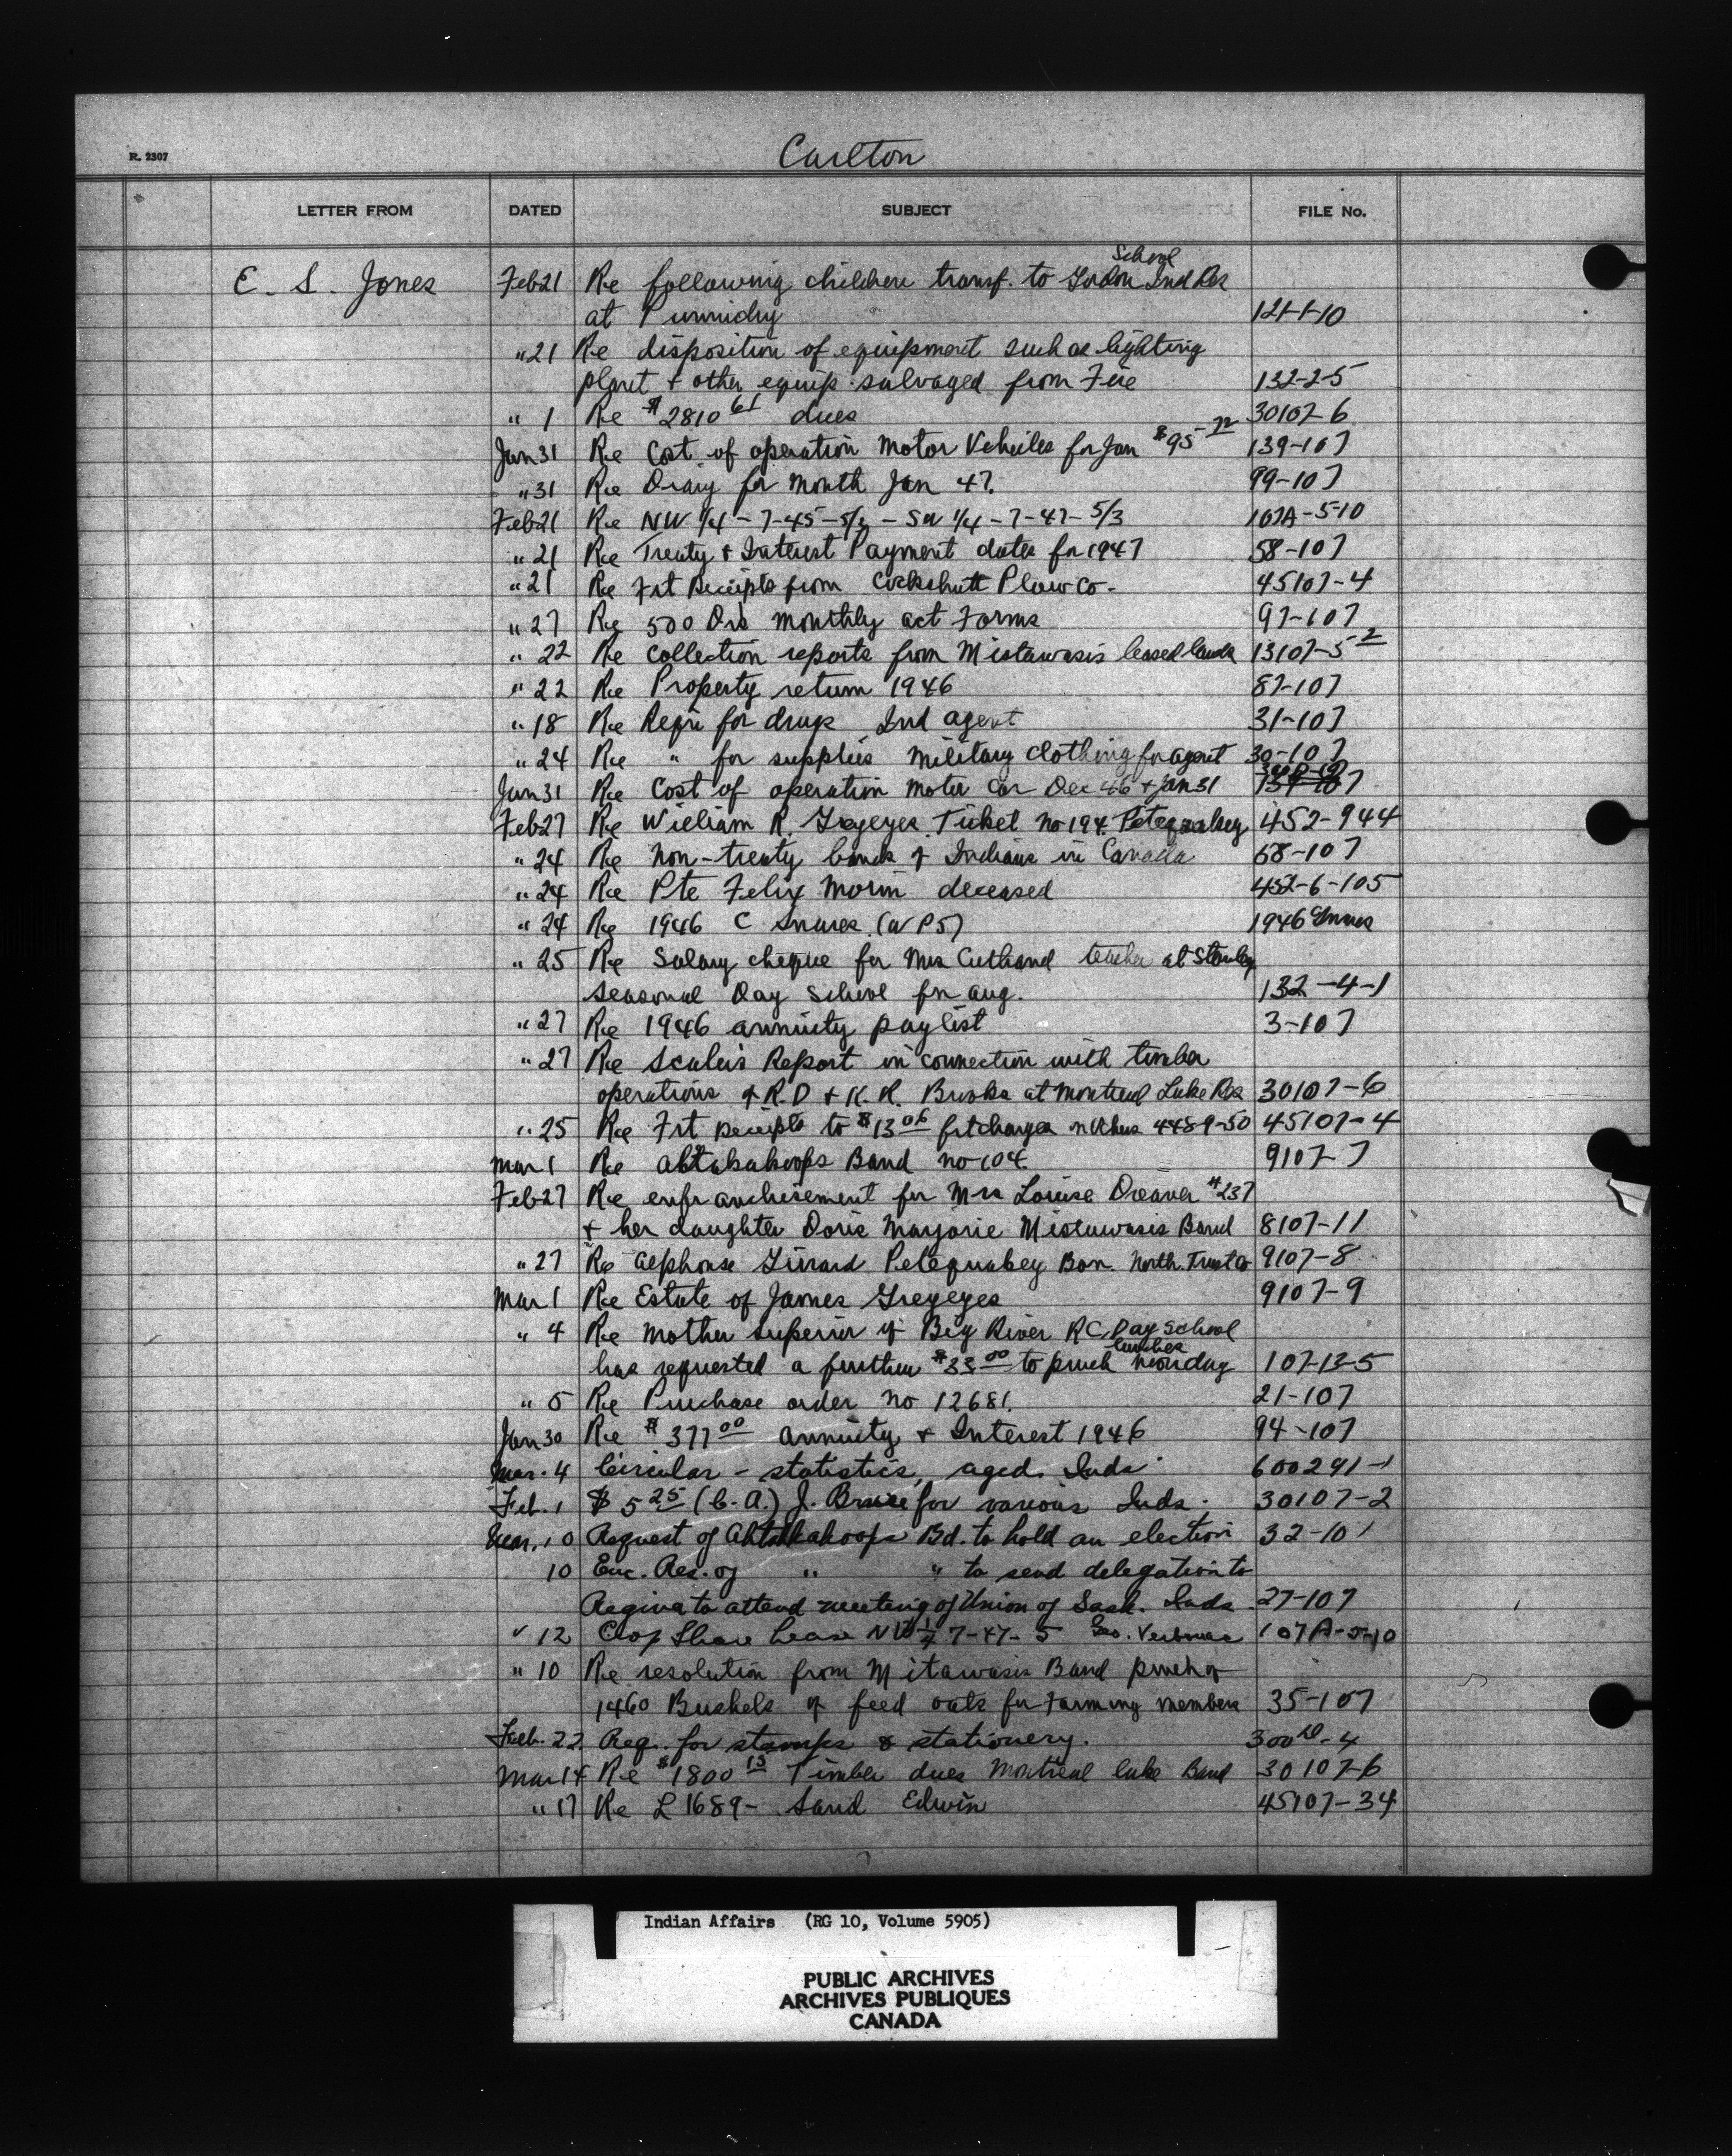 Carlton
R. 2307
LETTER FROM DATED SUBJECT FILE No.
School
E. S. Jones Feb 21 Re following children transf. to Gordon Ind Res
at Punnichy 121-1-10
" 21 Re disposition of equipment such as lighting
plant & other equip. salvaged from Fire 132-2-5
" 1 Re $2810 61 dues 30107-6
Jan 31 Re Cost of operation Motor Vehicles for Jan $95 72 139-107
" 31 Re Diary for Month Jan 47. 99-107
Feb 21 Re NW 1/4 - 7-45-5/3 - SW 1/4 - 7-47-5/3 107A-5-10
" 21 Re Treaty & Interest Payment dates for 1947 58-107
" 21 Re Frt Receipts from Cockshutt Plow Co. 45107-4
" 27 Re 500 Drs monthly act Forms 97-107
" 22 Re collection reports from Mistawasis leased lands 13107-5 2
" 22 Re Property return 1946 87-107
" 18 Re Requ for drugs Ind agent 31-107
" 24 Re " for supplies military clothing for agent 30-107
Jan 31 Re Cost of operation motor car Dec 46 & Jan 31
Feb 27 Re William R. Greyeyes Ticket no 194. Petequakey 452-944
" 24 Re non-treaty bands of Indians in Canada 68-107
" 24 Re Pte Felix Morin deceased 452-6-105
" 24 Re 1946 C Snares. (W P5) 1946 Snares
" 25 Re Salary cheque for Mrs Cuthand teacher at Stanley
seasonal Day School for aug. 132-4-1
" 27 Re 1946 annuity paylist 3-107
" 27 Re Scaler's Report in connection with timber
operations of R.D & K.R. Brooks at Montreal Lake Res 30107-6
" 25 Re Frt Receipts to $13 06 frt charges 4489-50 45107-4
Mar 1 Re Ahtahakoops Band no 104. 9107-7
Feb 27 Re enfranchisement for Mrs Louise Dreaver #237
& her daughter Doris Marjorie Mistawasis Band 8107-11
" 27 Re Alphonse Girard Petequakey Ban. North. Trust Co 9107-8
Mar 1 Re Estate of James Greyeyes 9107-9
" 4 Re Mother Superior of Big River RC Day School
lunches
has requested a further $33 00 to purch noonday 107-13-5
" 5 Re Purchase order no 12681. 21-107
Jan 30 Re $377 00 annuity & Interest 1946 94-107
Mar. 4 Circular - statistics, aged. Inds. 600291-1
Feb. 1 $5 25 (C.A.) J. Bruce for various Inds. 30107-2
Mar. 10 Request of Ahtahkakoops Bd. to hold an election 32-107
10 Enc. Res. of " " to send delegation to
Regina to attend meeting of Union of Sask. Inds. 27-107
" 12 Crop Share Lease NW 1/4 7-47-5 Geo. 107A-5-10
" 10 Re resolution from Mitawasis Band purch of
1460 Bushels of feed oats for Farming members 35-107
Feb. 22 Req. for stamps & stationery.
Mar 14 Re $1800 13 Timber dues Montreal lake Band 30107-6
" 17 Re L 1689- Sand Edwin 45107-34
Indian Affairs (RG 10, Volume 5905)
PUBLIC ARCHIVES
ARCHIVES PUBLIQUES
CANADA